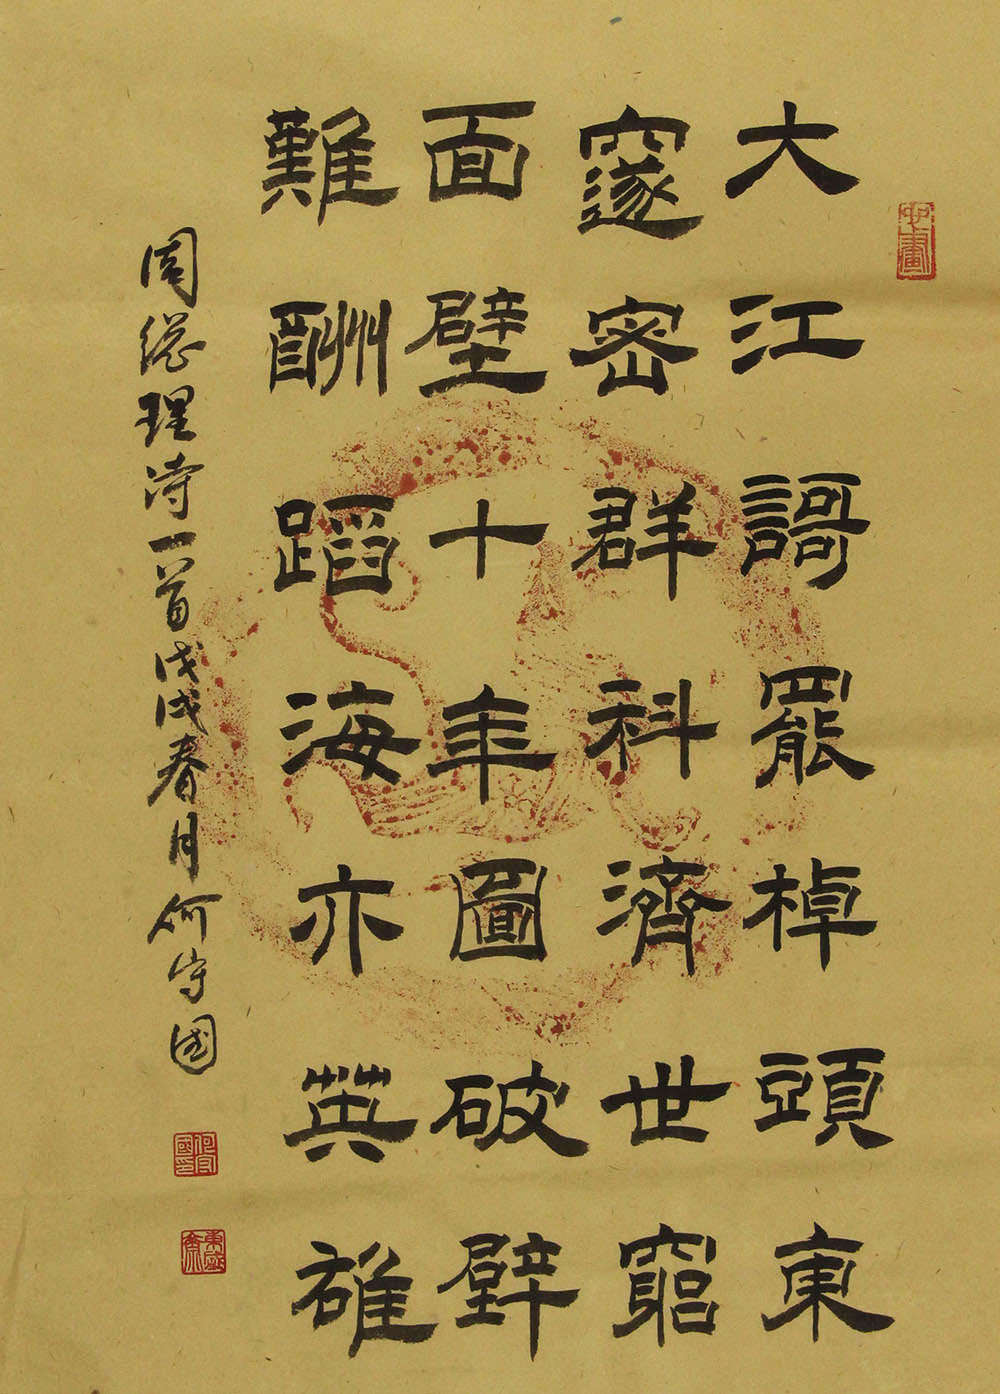 大江謌罷棹頭東
邃密群科濟世窮
面壁十年圖破壁
難酬蹈海亦英雄
周總理詩一首戊戌春月何守國